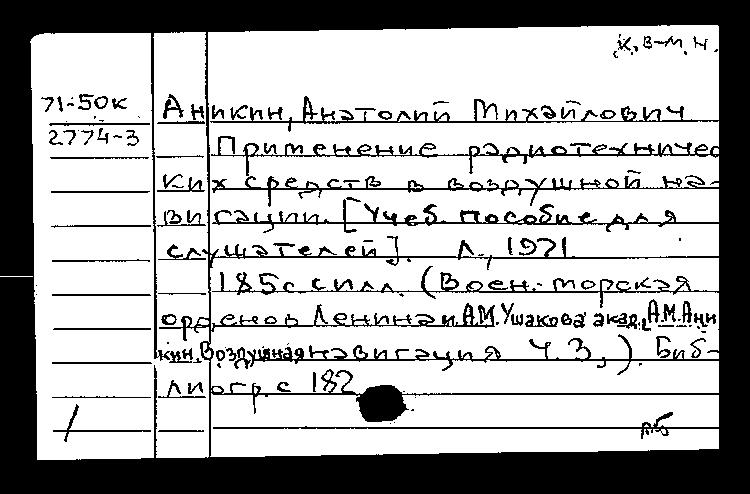 К. В-М. Н.
71-50к
2774-3
Аникин, Анатолий Михайлович
Применение радиотехничес
ких средств в воздушной на-
вигации. [Учеб. пособие для
слушателей]. Л., 1971.
185с. с илл. (Воен.-морская
орденов Ленина и А.М.Ушакова акад., А.М.Ани
кин. Воздушная навигация Ч. 3,). Биб-
лиогр. с 182
/